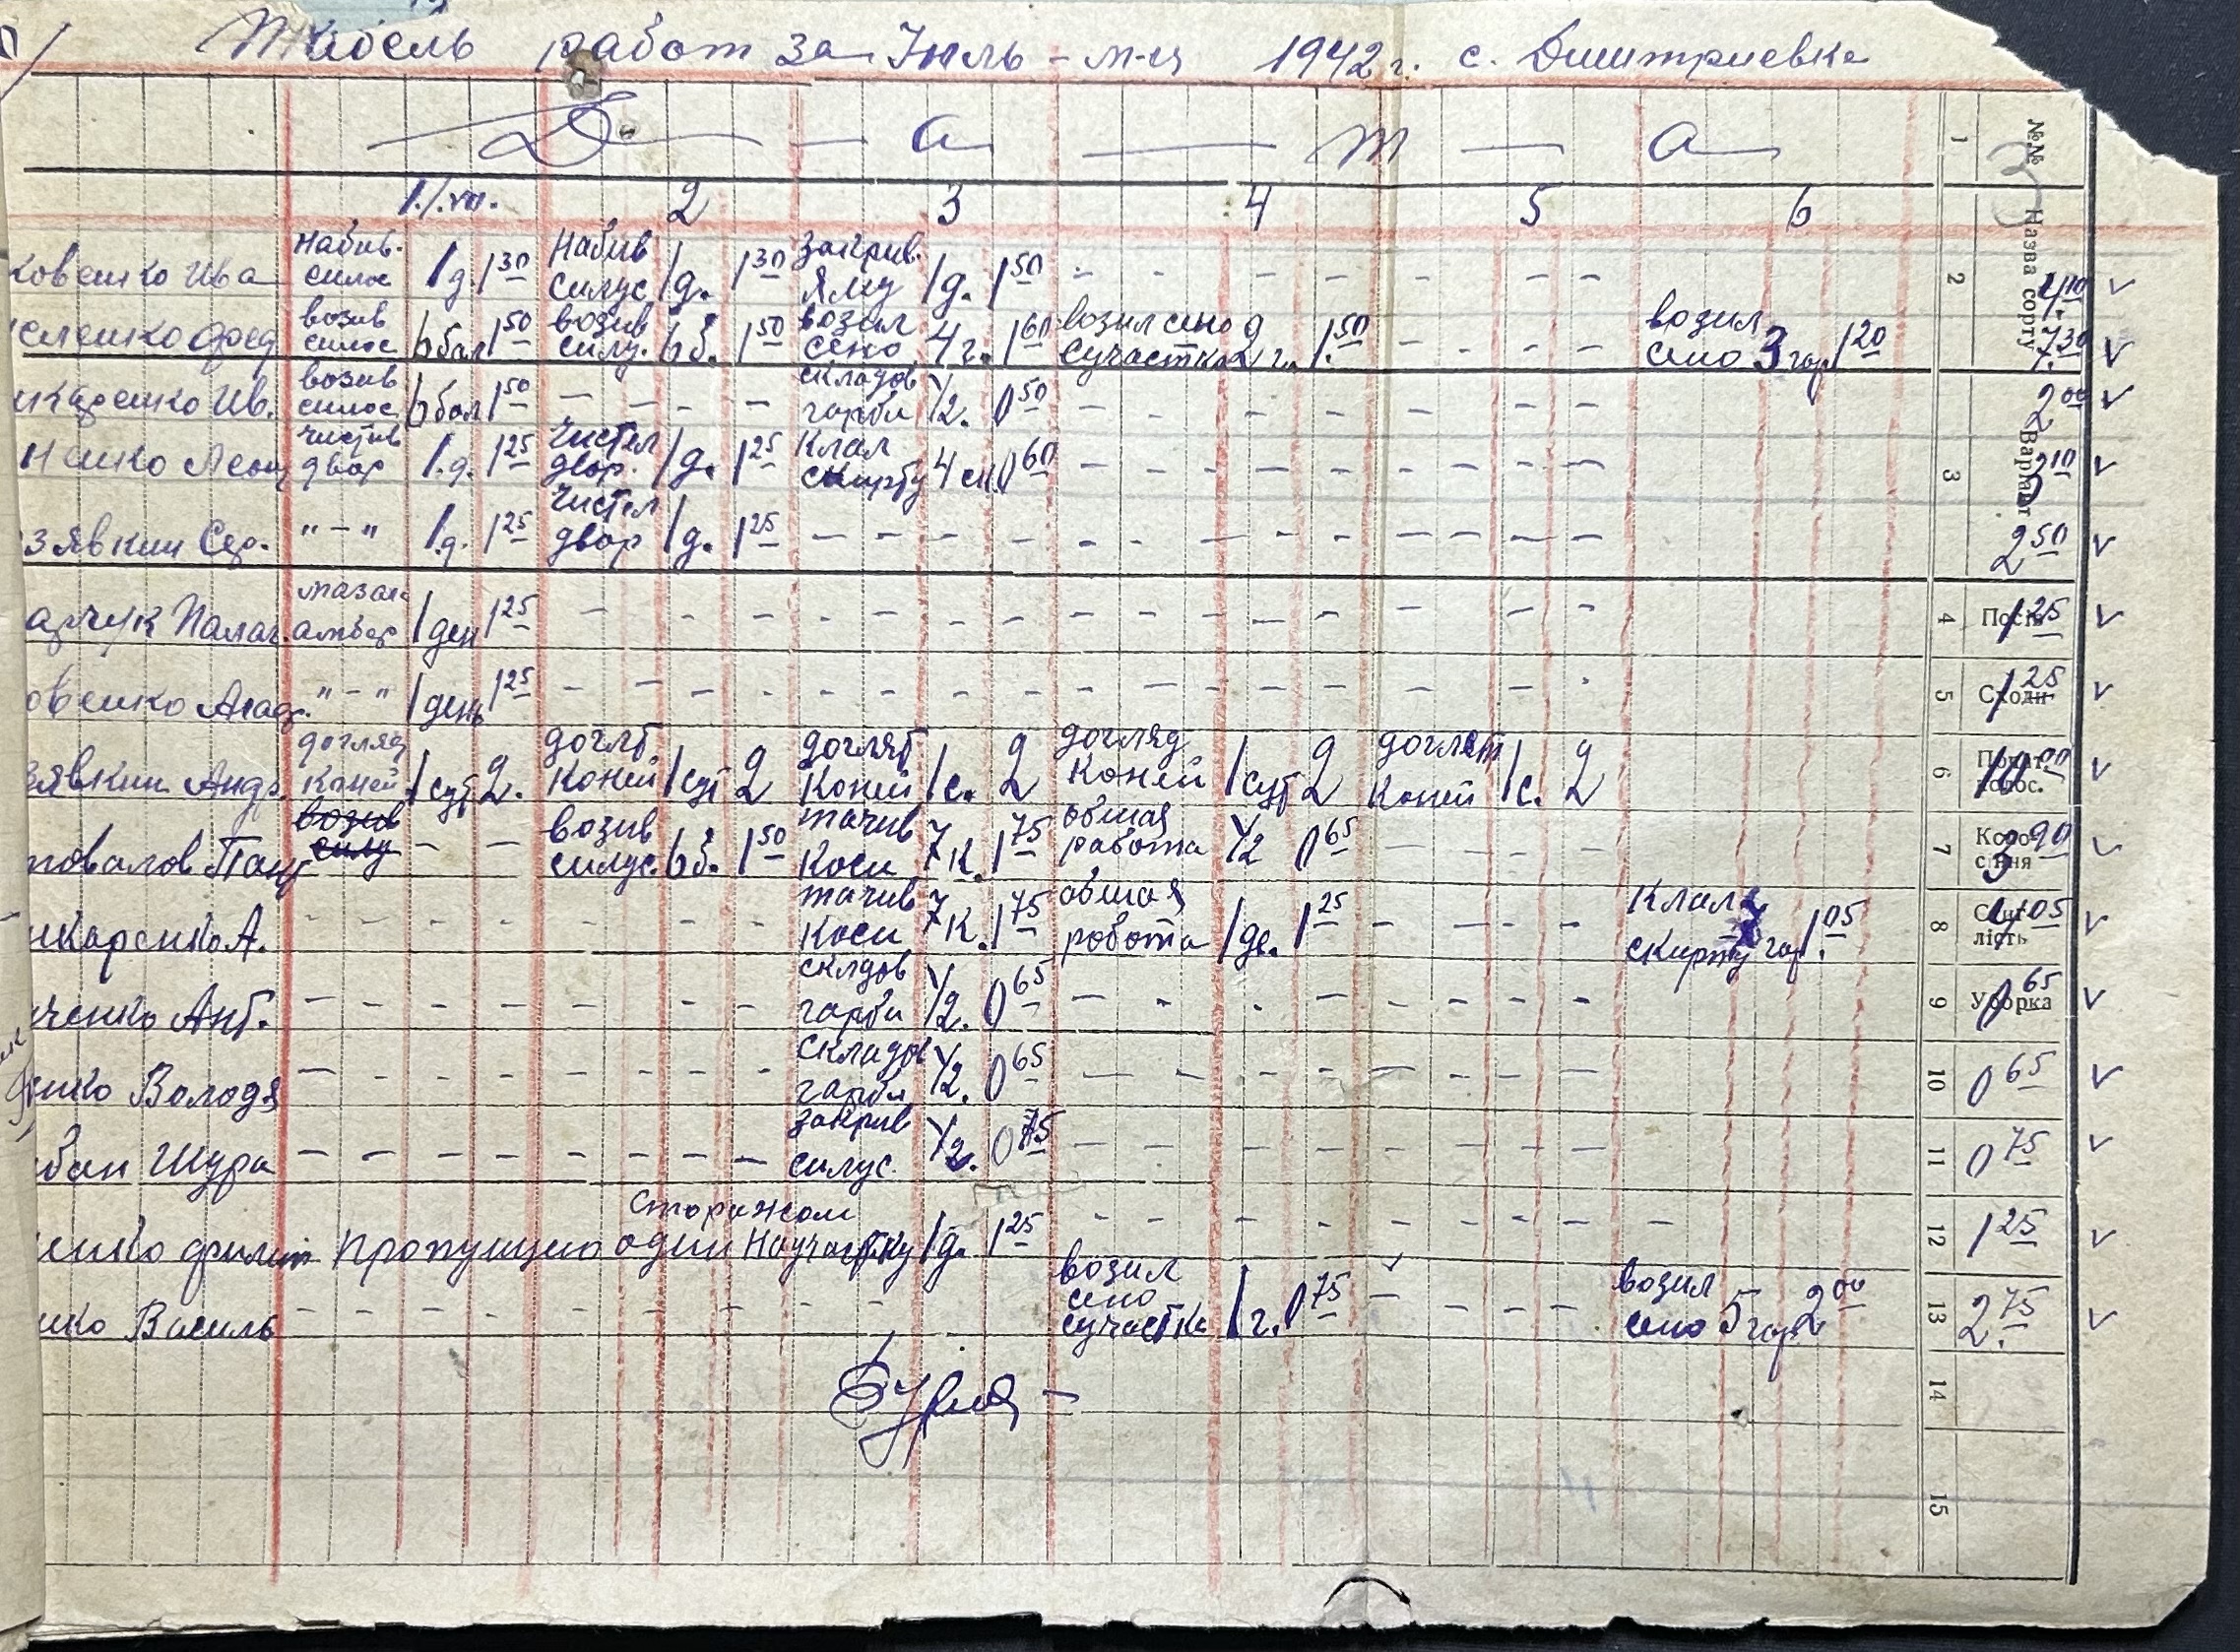 Табель работ за Июль - м-ц 1942 г. с. Дмитриевка
Д а т а
1./VII. 2 3 4 5 6
ковенко Ива набив. силос 1 д. 1 30 набив силус 1 д. 1 30 закрив. яму 1 д. 1 50 - - - - - - - - 4 10 ✓
еленко Фред возив силос 6 бал 1 50 возив силу. 6 б. 1 50 возил сено 4 г. 1 60 возил сено сучастка 2 г. 1. 50 - - - - возил сено 3 гар 1 20 7. 30 ✓
нкаренко Ив. возив силос 6 бал 1 50 - - - - складов гарби 1/2. 0 50 - - - - - - - - 2 00 ✓
нко Леон чистив двор 1. д. 1 25 чистел двор. 1 д. 1 25 клал скирту 4 ск. 0 60 - - - - - - - - 3 10 ✓
зявкин Сер. " - " 1 д. 1 25 чистел двор 1 д. 1 25 - - - - - - - - - - - - 2 50 ✓
арчук Палаг. мазал амбар 1 ден 1 25 - - - - - - - - - - - - 1 25 ✓
овенко Агад. " - " 1 день 1 25 - - - - - - - - - - - - 1 25 ✓
зявкин Андр. догляд коней 1 сут 2. догля коней 1 сут 2 догляд коней 1 с. 2 догляд коней 1 сут 2 доглят коней 1 с. 2 10 00 ✓
повалов Пант возив силу - - возив силус. 6 б. 1 50 тачив коси 7 к. 1 75 общая работа 1/2 0 65 - - - - 3 90 ✓
нкаренко А. - - - - - - - тачив коси 7 к. 1 75 общая робота 1 де. 1 25 - - - - клал скирту 3 гар. 1 05 4 05 ✓
ченко Ант. - - - - - - - складов гарби 1/2. 0 65 - - - - - - - - 0 65 ✓
нко Володя - - - - - - - складов гарби 1/2. 0 65 - - - - - - - - 0 65 ✓
бан Шура - - - - - - - - закрив силус. 1/2. 0 75 - - - - - - - - 0 75 ✓
енко Филип пропущено один сторожом научастку 1 д. 1 25 - - - - - - - - - 1 25 ✓
нко Василь - - - - - - - - - - возил сено сучастка 1 г. 0 75 - - - - возил сено 5 гар. 2 00 2. 75 ✓
1 №№
2 Назва сорту
3 Варіант
4
5 Сходи
6
7
8
9 Уборка
10
11
12
13
14
15